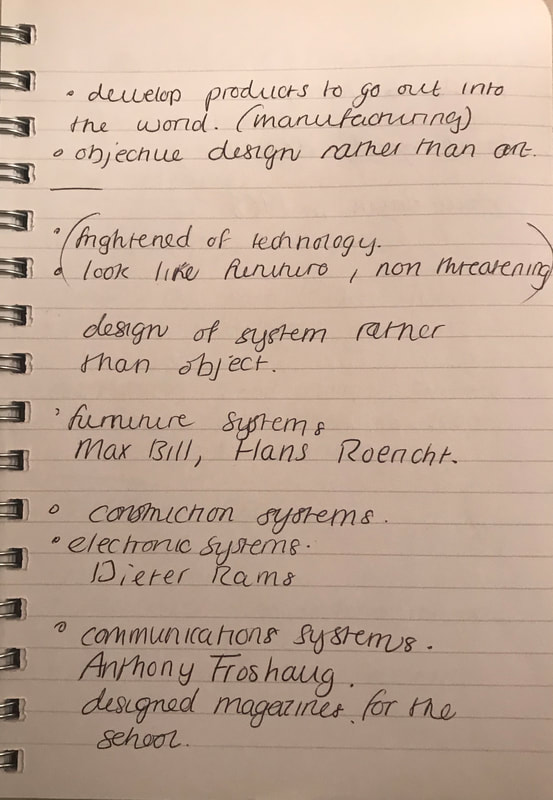 • develop products to go out into
the world. (manufacturing)
• objective design rather than art.
• (frightened of technology.
• look like furniture, non threatening)
design of system rather
than object.
• furniture systems
Max Bill, Hans Roericht.
• construction systems.
• electronic systems.
Dieter Rams
• communications systems.
Anthony Froshaug.
designed magazines for the
school.